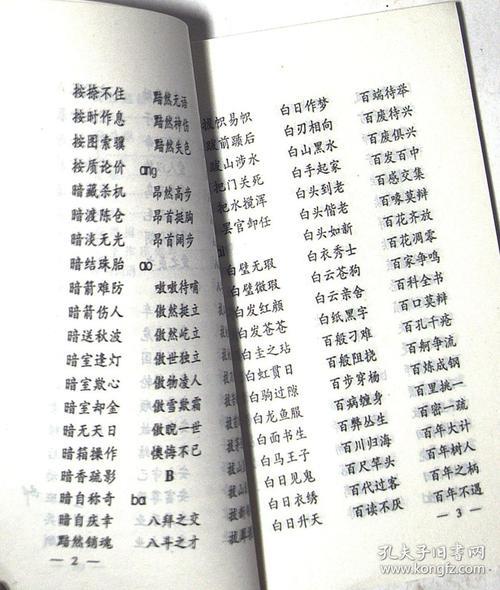 按捺不住
按时作息
按图索骥
按质论价
暗藏杀机
暗渡陈仓
暗淡无光
暗结珠胎
暗箭难防
暗箭伤人
暗送秋波
暗室逢灯
暗室欺心
暗室却金
暗无天日
暗箱操作
暗香疏影
暗自称奇
暗自庆幸
黯然销魂
黯然无语
黯然神伤
黯然失色
ang
昂然高步
昂首挺胸
昂首阔步
ao
嗷嗷待哺
傲然挺立
傲然屹立
傲世独立
傲物凌人
傲雪欺霜
傲睨一世
懊悔不已
B
ba
八拜之交
八斗之才
— 2 —
拔帜易帜
跋前踬后
跋山涉水
把门关死
把水搅浑
罢官卸任
白璧无瑕
白璧微瑕
白发红颜
白发苍苍
白圭之玷
白虹贯日
白驹过隙
白龙鱼服
白面书生
白马王子
白日见鬼
白日衣绣
白日升天
白日作梦
白刃相向
白山黑水
白手起家
白头到老
白头偕老
白头如新
白衣秀士
白云苍狗
白云亲舍
白纸黑字
百般刁难
百般阻挠
百步穿杨
百病缠身
百弊丛生
百川归海
百尺竿头
百代过客
百读不厌
百端待举
百废待兴
百废俱兴
百发百中
百感交集
百喙莫辩
百花齐放
百花凋零
百家争鸣
百科全书
百口莫辩
百孔千疮
百舸争流
百炼成钢
百里挑一
百密一疏
百年大计
百年树人
百年之柄
百年不遇
— 3 —
孔夫子旧书网
www.kongfz.com